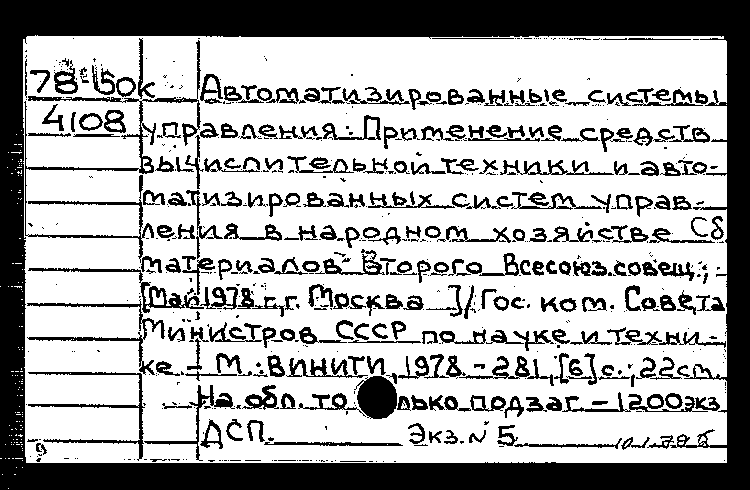 78-50к Автоматизированные системы
4108 управления: Применение средств
вычислительной техники и авто-
матизированных систем управ-
ления в народном хозяйстве Сб
материалов Второго Всесоюз.совещ.,-
[Май 1978 г., г. Москва ]/Гос. ком. Совета
Министров СССР по науке и техни-
ке - М.: ВИНИТИ, 1978 - 281,[6]с.; 22см.
На обл. только подзаг. - 1200экз
ДСП. Экз. № 5
9